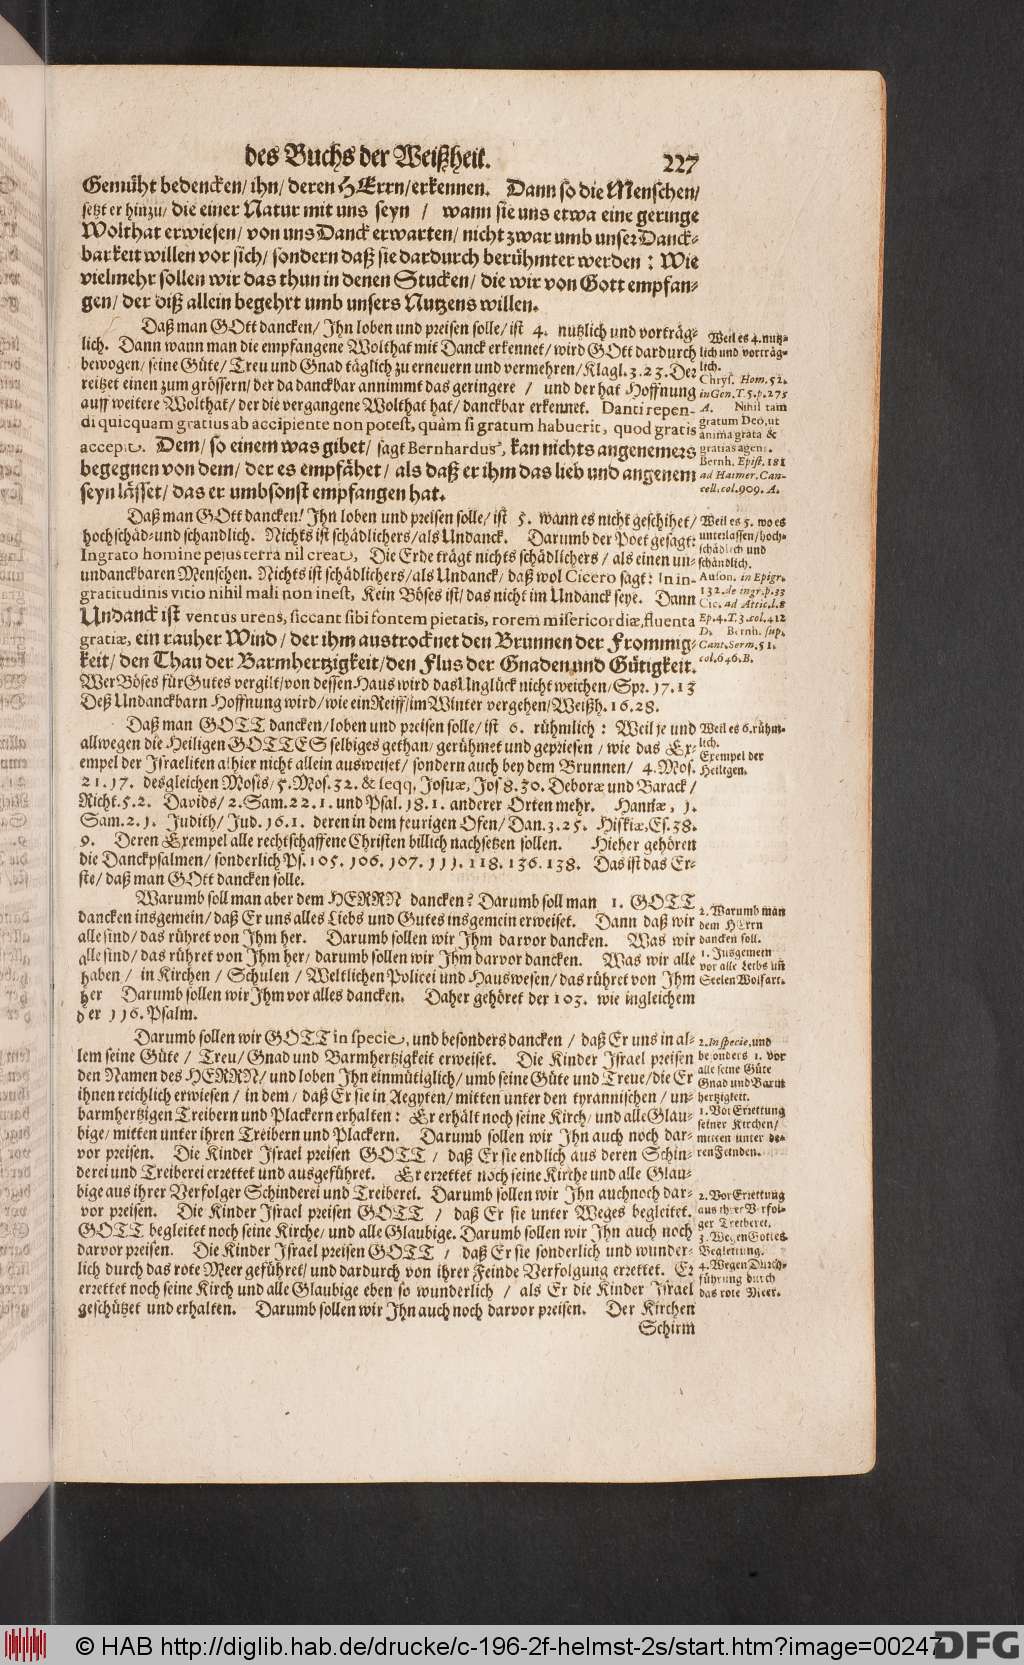 des Buchs der Weißheit. 227
Gemüht bedencken/ ihn/ deren HErrn/ erkennen. Dann so die Menschen/
setzt er hinzu/ die einer Natur mit uns seyn / wann sie uns etwa eine geringe
Wolthat erwiesen/ von uns Danck erwarten/ nicht zwar umb unser Danck-
barkeit willen vor sich/ sondern daß sie dardurch berühmter werden: Wie
vielmehr sollen wir das thun in denen Stucken/ die wir von Gott empfan-
gen/ der diß allein begehrt umb unsers Nutzens willen.
Daß man GOtt dancken/ Ihn loben und preisen solle/ ist 4. nutzlich und vorträg-
lich. Dann wann man die empfangene Wolthat mit Danck erkennet/ wird GOtt dardurch
bewogen/ seine Güte/ Treu und Gnad täglich zu erneuern und vermehren/ Klagl. 3. 23. Der
reitzet einen zum grössern/ der da danckbar annimmt das geringere / und der hat Hoffnung
auff weitere Wolthat/ der die vergangene Wolthat hat/ danckbar erkennet. Danti repen-
di quicquam gratius ab accipiente non potest, quàm si gratum habuerit, quod gratis
accepit. Dem/ so einem was gibet/ sagt Bernhardus, kan nichts angenemers
begegnen von dem/ der es empfähet/ als daß er ihm das lieb und angenem
seyn lässet/ das er umbsonst empfangen hat.
Weil es 4. nutz-
lich und vorträg-
lich.
Chrys. Hom. 52.
in Gen. T. 5. p. 275
A. Nihil tam
gratum Deo, ut
anima grata &
gratias agens.
Bernh. Epist. 181
ad Haimer. Can-
cell. col. 909. A.
Daß man GOtt dancken! Ihn loben und preisen solle/ ist 5. wann es nicht geschihet/
hochschäd- und schandlich. Nichts ist schädlichers/ als Undanck. Darumb der Poet gesagt:
Ingrato homine pejus terra nil creat, Die Erde trägt nichts schädlichers/ als einen un-
undanckbaren Menschen. Nichts ist schädlichers/ als Undanck/ daß wol Cicero sagt: In in-
gratitudinis vitio nihil mali non inest, Kein Böses ist/ das nicht im Undanck seye. Dann
Undanck ist ventus urens, siccant sibi fontem pietatis, rorem misericordiæ, fluenta
gratiæ, ein rauher Wind/ der ihm austrocknet den Brunnen der Frommig-
keit/ den Thau der Barmhertzigkeit/ den Flus der Gnaden und Gütigkeit.
Wer Böses für Gutes vergilt/ von dessen Haus wird das Unglück nicht weichen/ Spr. 17. 13
Deß Undanckbarn Hoffnung wird/ wie ein Reiff/ im Winter vergehen/ Weißh. 16. 28.
Weil es 5. wo es
unterlassen/ hoch-
schädlich und
schändlich.
Auson. in Epigr.
132. de ingr. p. 33
Cic. ad Attic. l. 8
Ep. 4. T. 3. col. 412
D. Bernh. sup.
Cant. Serm. 51.
col. 646. B.
Daß man GOTT dancken/ loben und preisen solle/ ist 6. rühmlich: Weil je und
allwegen die Heiligen GOTTES selbiges gethan/ gerühmet und gepriesen / wie das Ex-
empel der Israeliten alhier nicht allein ausweiset/ sondern auch bey dem Brunnen/ 4. Mos.
21. 17. desgleichen Mosis/ 5. Mos. 32. & seqq. Josuæ, Jos 8. 30. Deboræ und Barack/
Richt. 5. 2. Davids/ 2. Sam. 22. 1. und Psal. 18. 1. anderer Orten mehr. Hannæ, 1.
Sam. 2. 1. Judith/ Jud. 16. 1. deren in dem feurigen Ofen/ Dan. 3. 25. Hiskiæ, Es. 38.
9. Deren Exempel alle rechtschaffene Christen billich nachsetzen sollen. Hieher gehören
die Danckpsalmen/ sonderlich Ps. 105. 106. 107. 111. 118. 136. 138. Das ist das Er-
ste/ daß man GOtt dancken solle.
Weil es 6. rühm-
lich.
Exempel der
Heiligen.
Warumb soll man aber dem HERRN dancken? Darumb soll man 1. GOTT
dancken insgemein/ daß Er uns alles Liebs und Gutes insgemein erweiset. Dann daß wir
alle sind/ das rühret von Ihm her. Darumb sollen wir Ihm darvor dancken. Was wir
alle sind/ das rühret von Ihm her/ darumb sollen wir Ihm darvor dancken. Was wir alle
haben/ in Kirchen/ Schulen/ Weltlichen Policei und Hauswesen/ das rühret von Ihm
her Darumb sollen wir Ihm vor alles dancken. Daher gehöret der 103. wie ingleichem
der 116. Psalm.
2. Warumb man
dem HErrn
dancken soll.
1. Insgemein
vor alle Leibs uñ
Seelen Wolfart.
Darumb sollen wir GOTT in specie, und besonders dancken / daß Er uns in al-
lem seine Güte / Treu/ Gnad und Barmhertzigkeit erweiset. Die Kinder Israel preisen
den Namen des HERRN/ und loben Ihn einmütiglich/ umb seine Güte und Treue/ die Er
ihnen reichlich erwiesen/ in dem/ daß Er sie in Aegypten/ mitten unter den tyrannischen / un-
barmhertzigen Treibern und Plackern erhalten: Er erhält noch seine Kirch/ und alle Glau-
bige/ mitten unter ihren Treibern und Plackern. Darumb sollen wir Ihn auch noch dar-
vor preisen. Die Kinder Israel preisen GOTT / daß Er sie endlich aus deren Schin-
derei und Treiberei errettet und ausgeführet. Er errettet noch seine Kirche und alle Glau-
bige aus ihrer Verfolger Schinderei und Treiberei. Darumb sollen wir Ihn auch noch dar-
vor preisen. Die Kinder Israel preisen GOTT / daß Er sie unter Weges begleitet.
GOTT begleitet noch seine Kirche/ und alle Glaubige. Darumb sollen wir Ihn auch noch
darvor preisen. Die Kinder Israel preisen GOTT / daß Er sie sonderlich und wunder-
lich durch das rote Meer geführet/ und dardurch von ihrer Feinde Verfolgung errettet. Er
errettet noch seine Kirch und alle Glaubige eben so wunderlich / als Er die Kinder Israel
geschützet und erhalten. Darumb sollen wir Ihn auch noch darvor preisen. Der Kirchen
Schirm
2. In specie, und
besonders 1. vor
alle seine Güte
Gnad und Barm
hertzigkeit.
1. Vor Errettung
seiner Kirchen/
mitten unter de-
ren Feinden.
2. Vor Errettung
aus ihrer Verfol-
ger Treiberei.
3. Wegen Gottes
Begleitung.
4. Wegen Durch-
führung durch
das rote Meer.
© HAB http://diglib.hab.de/drucke/c-196-2f-helmst-2s/start.htm?image=00247
DFG